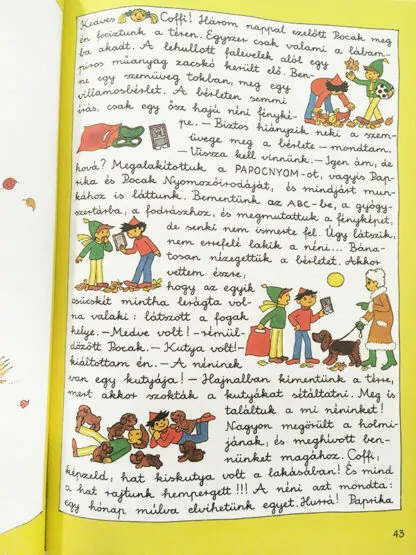 Kedves Coffi! Három nappal ezelőtt Pocak meg
én fociztunk a téren. Egyszer csak valami a lábam-
ba akadt. A lehullott falevelek alól egy
piros műanyag zacskó került elő. Ben-
ne egy szemüveg tokban, meg egy
villamosbérlet. A bérleten semmi
írás, csak egy ősz hajú néni fényké-
pe. – Biztos hiányzik neki a szem-
üvege meg a bérlete – mondtam.
– Vissza kell vinnünk. – Igen ám, de
hová? Megalakítottuk a PAPOCNYOM-ot, vagyis Pap-
rika és Pocak Nyomozóirodáját, és mindjárt mun-
kához is láttunk. Bementünk az ABC-be, a gyógy-
szertárba, a fodrászhoz, és megmutattuk a fényképet,
de senki nem ismerte fel. Úgy látszik,
nem errefelé lakik a néni... Bána-
tosan nézegettük a bérletet. Akkor
vettem észre,
hogy az egyik
csücskét mintha lerágta vol-
na valaki: látszott a fogak
helye. – Medve volt! – rémül-
dözött Pocak. – Kutya volt! –
kiáltottam én. – A néninek
van egy kutyája! – Hajnalban kimentünk a térre,
mert akkor szokták a kutyákat sétáltatni. Meg is
találtuk a mi néninket!
Nagyon megörült a holmi-
jának, és meghívott ben-
nünket magához. Coffi,
képzeld, hat kiskutya volt a lakásában! És mind
a hat rajtunk hempergett!!! A néni azt mondta:
egy hónap múlva elvihetünk egyet. Hurrá! Paprika
43